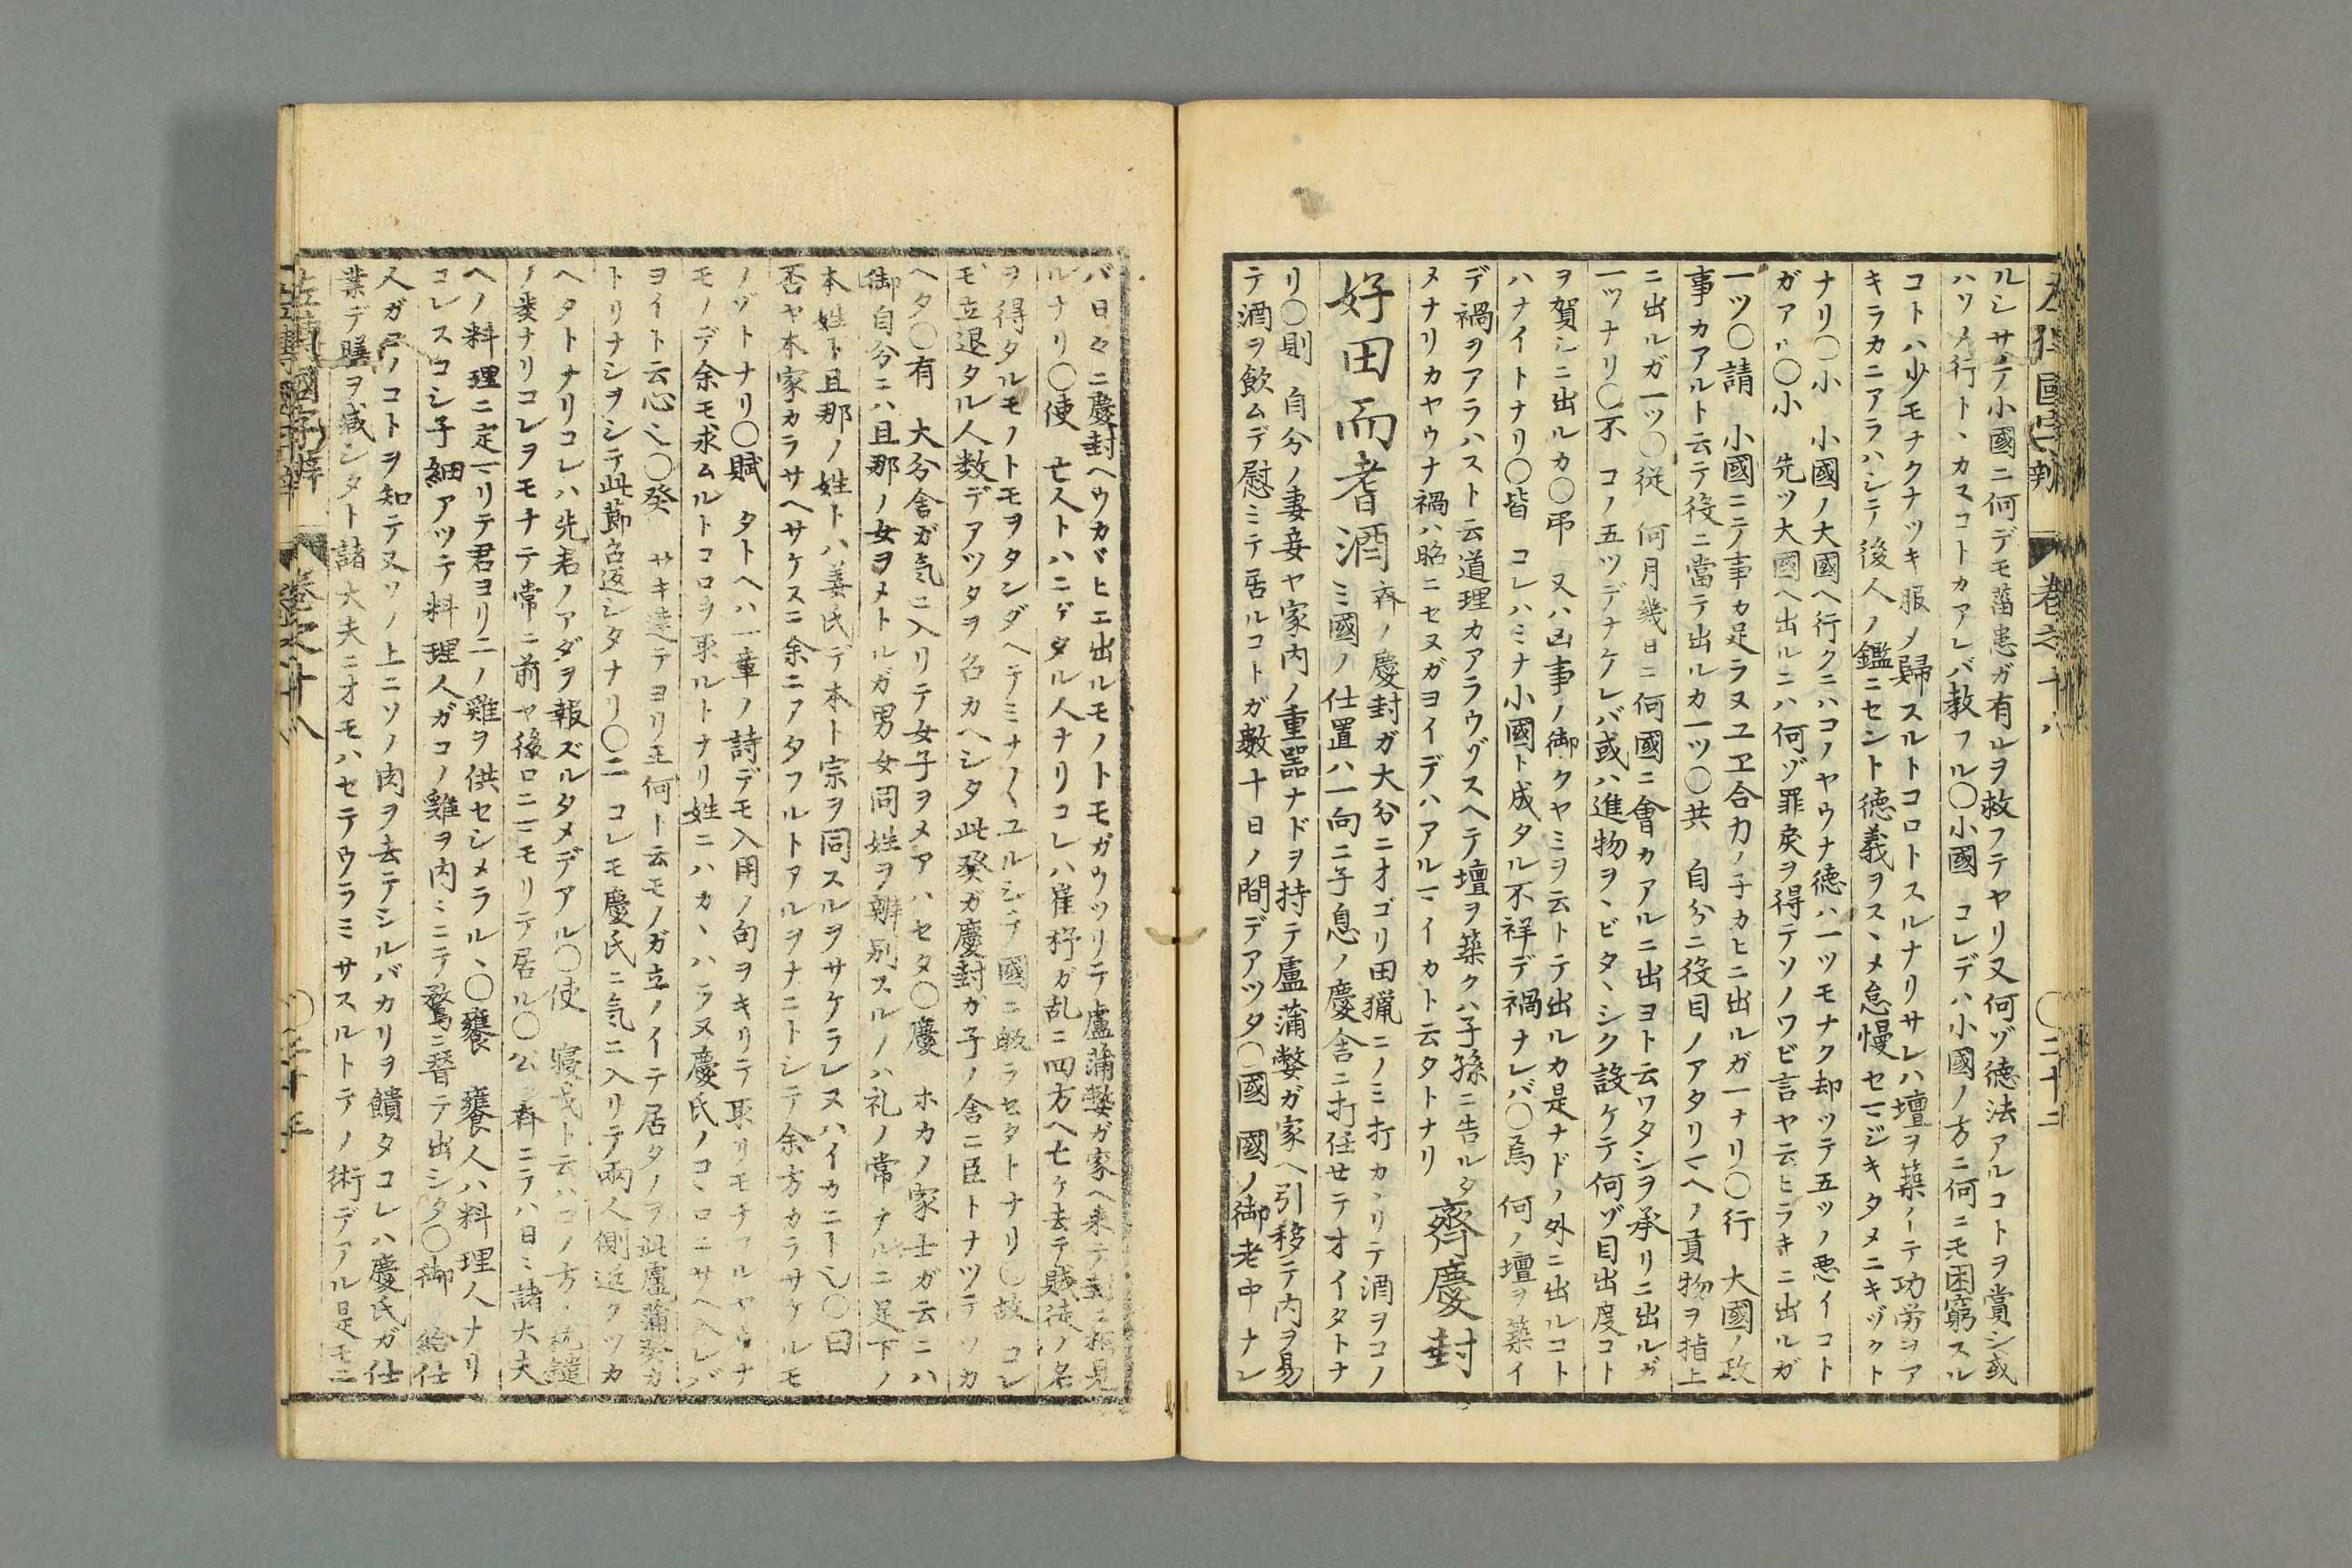 ルシサテ小國ニ何デモ菑患ガ有ルヲ救フテヤリ又何ゾ徳法アルコトヲ賞シ或
ハソノ行トヽカヌコトカアレバ教フル〇小國　コレデハ小國ノ方ニ何ニモ困窮スル
コトハ少モナクナツキ服メ歸スルトコロトスルナリサレハ壇ヲ築ノテ功労ヲア
キラカニアラハシテ後人ノ鑑ニセント徳義ヲスヽメ怠慢セマジキタメニキヅクト
ナリ〇小　小國ノ大國ヘ行クニハコノヤウナ徳ハ一ツモナク却ツテ五ツノ悪イコト
ガアル〇小　先ツ大國ヘ出ルニハ何ゾ罪戻ヲ得テソノワビ言ヤ云ヒラキニ出ルガ
一ツ〇請　小國ニテ事カ足ラヌユヱ合力ノ子カヒニ出ルガ一ナリ〇行　大國ノ政
事カアルト云テ役ニ當テ出ルカ一ツ〇共　自分ニ役目ノアタリマヘノ貢物ヲ指上
ニ出ルガ一ツ〇従　何月幾日ニ何國ニ會カアルニ出ヨト云ワタシヲ承リニ出ルガ
一ツナリ〇不　コノ五ツデナケレバ或ハ進物ヲヽビタヽシク設ケテ何ゾ目出度コト
ヲ賀シニ出ルカ〇弔　又ハ凶事ノ御クヤミヲ云トテ出ルカ是ナドノ外ニ出ルコト
ハナイトナリ〇皆　コレハミナ小國ト成タル不祥デ禍ナレバ〇焉　何ノ壇ヲ築イ
デ禍ヲアラハスト云道理カアラウゾスヘテ壇ヲ築クハ子孫ニ告ルタ
メナリカヤウナ禍ハ昭ニセヌガヨイデハアルマイカト云タトナリ
齊慶封
好田而耆酒
斉ノ慶封ガ大分ニオゴリ田猟ニノミ打カヽリテ酒ヲコノ
ミ國ノ仕置ハ一向ニ子息ノ慶舎ニ打任せテオイタトナ
リ〇則　自分ノ妻妾ヤ家内ノ重噐ナドヲ持テ盧蒲嫳ガ家ヘ引移テ内ヲ易
テ酒ヲ飲ムデ慰ミテ居ルコトガ數十日ノ間デアツタ〇國　國ノ御老中ナレ
バ日々ニ慶封ヘウカヾヒニ出ルモノトモガウツリテ盧蒲嫳ガ家ヘ来テ封ニ
ルナリ〇使　亡人トハニゲタル人ナリコレハ崔杼ガ乱ニ四方ヘ亡ケ去テ賊徒ノ名
ヲ得タルモノトモヲタンダヘテミナ〱ユルシテ國ニ皈ラセタトナリ〇故　コレ
モ立退タル人数デアツタヲ召カヘシタ此癸ガ慶封ガ子ノ舎ニ臣トナツテツカ
ヘタ〇有　大分舎ガ気ニ入リテ女子ヲメアハセタ〇慶　ホカノ家士ガ云ニハ
御自分ニハ旦那ノ女ヲメトルガ男女同姓ヲ辨別スルノハ礼ノ常ナルニ足下ノ
本姓ト旦那ノ姓トハ姜氏デ本ト宗ヲ同スルヲサケラレヌハイカニト也〇曰
否ヤ本家カラサヘサケスニ余ニアタフルトアルヲナニトシテ余方カラサケルモ
ノゾトナリ〇賦　タトヘハ一章ノ詩デモ入用ノ句ヲキリテ取リモチフルヤウナ
モノデ余モ求ムルトコロヲ取ルトナリ姓ニハカヽハラヌ慶氏ノコヽロニサヘ入レバ
ヨイト云心也〇癸　サキ達テヨリ王何ト云モノガ立ノイテ居タノヲ此盧蒲癸カ
トリナシヲシテ此節召返シタナリ〇二　コレモ慶氏ニ気ニ入リテ兩人側近クツカ
ヘタトナリコレハ先君ノアダヲ報ズルタメデアル〇使　寝戈ト云ハコノ方ノ
ノ類ナリコレヲモチテ常ニ前ヤ後ロニマモリテ居ル〇公　斉ニテハ日ミ諸大夫
ヘノ料理ニ定マリテ君ヨリ二ノ雞ヲ供セシメラルヽ〇饔　饔人ハ料理人ナリ
コレスコシ子細アツテ料理人ガコノ雞ヲ内ミニテ鶩ニ替テ出シタ〇御　給仕
人ガコノコトヲ知テ又ソノ上ニソノ肉ヲ去テシルバカリヲ饋タコレハ慶氏ガ仕
業デ膳ヲ減シタト諸大夫ニオモハセテウラミサスルトテノ術デアル是モニ
左傳國字辨　卷之十八